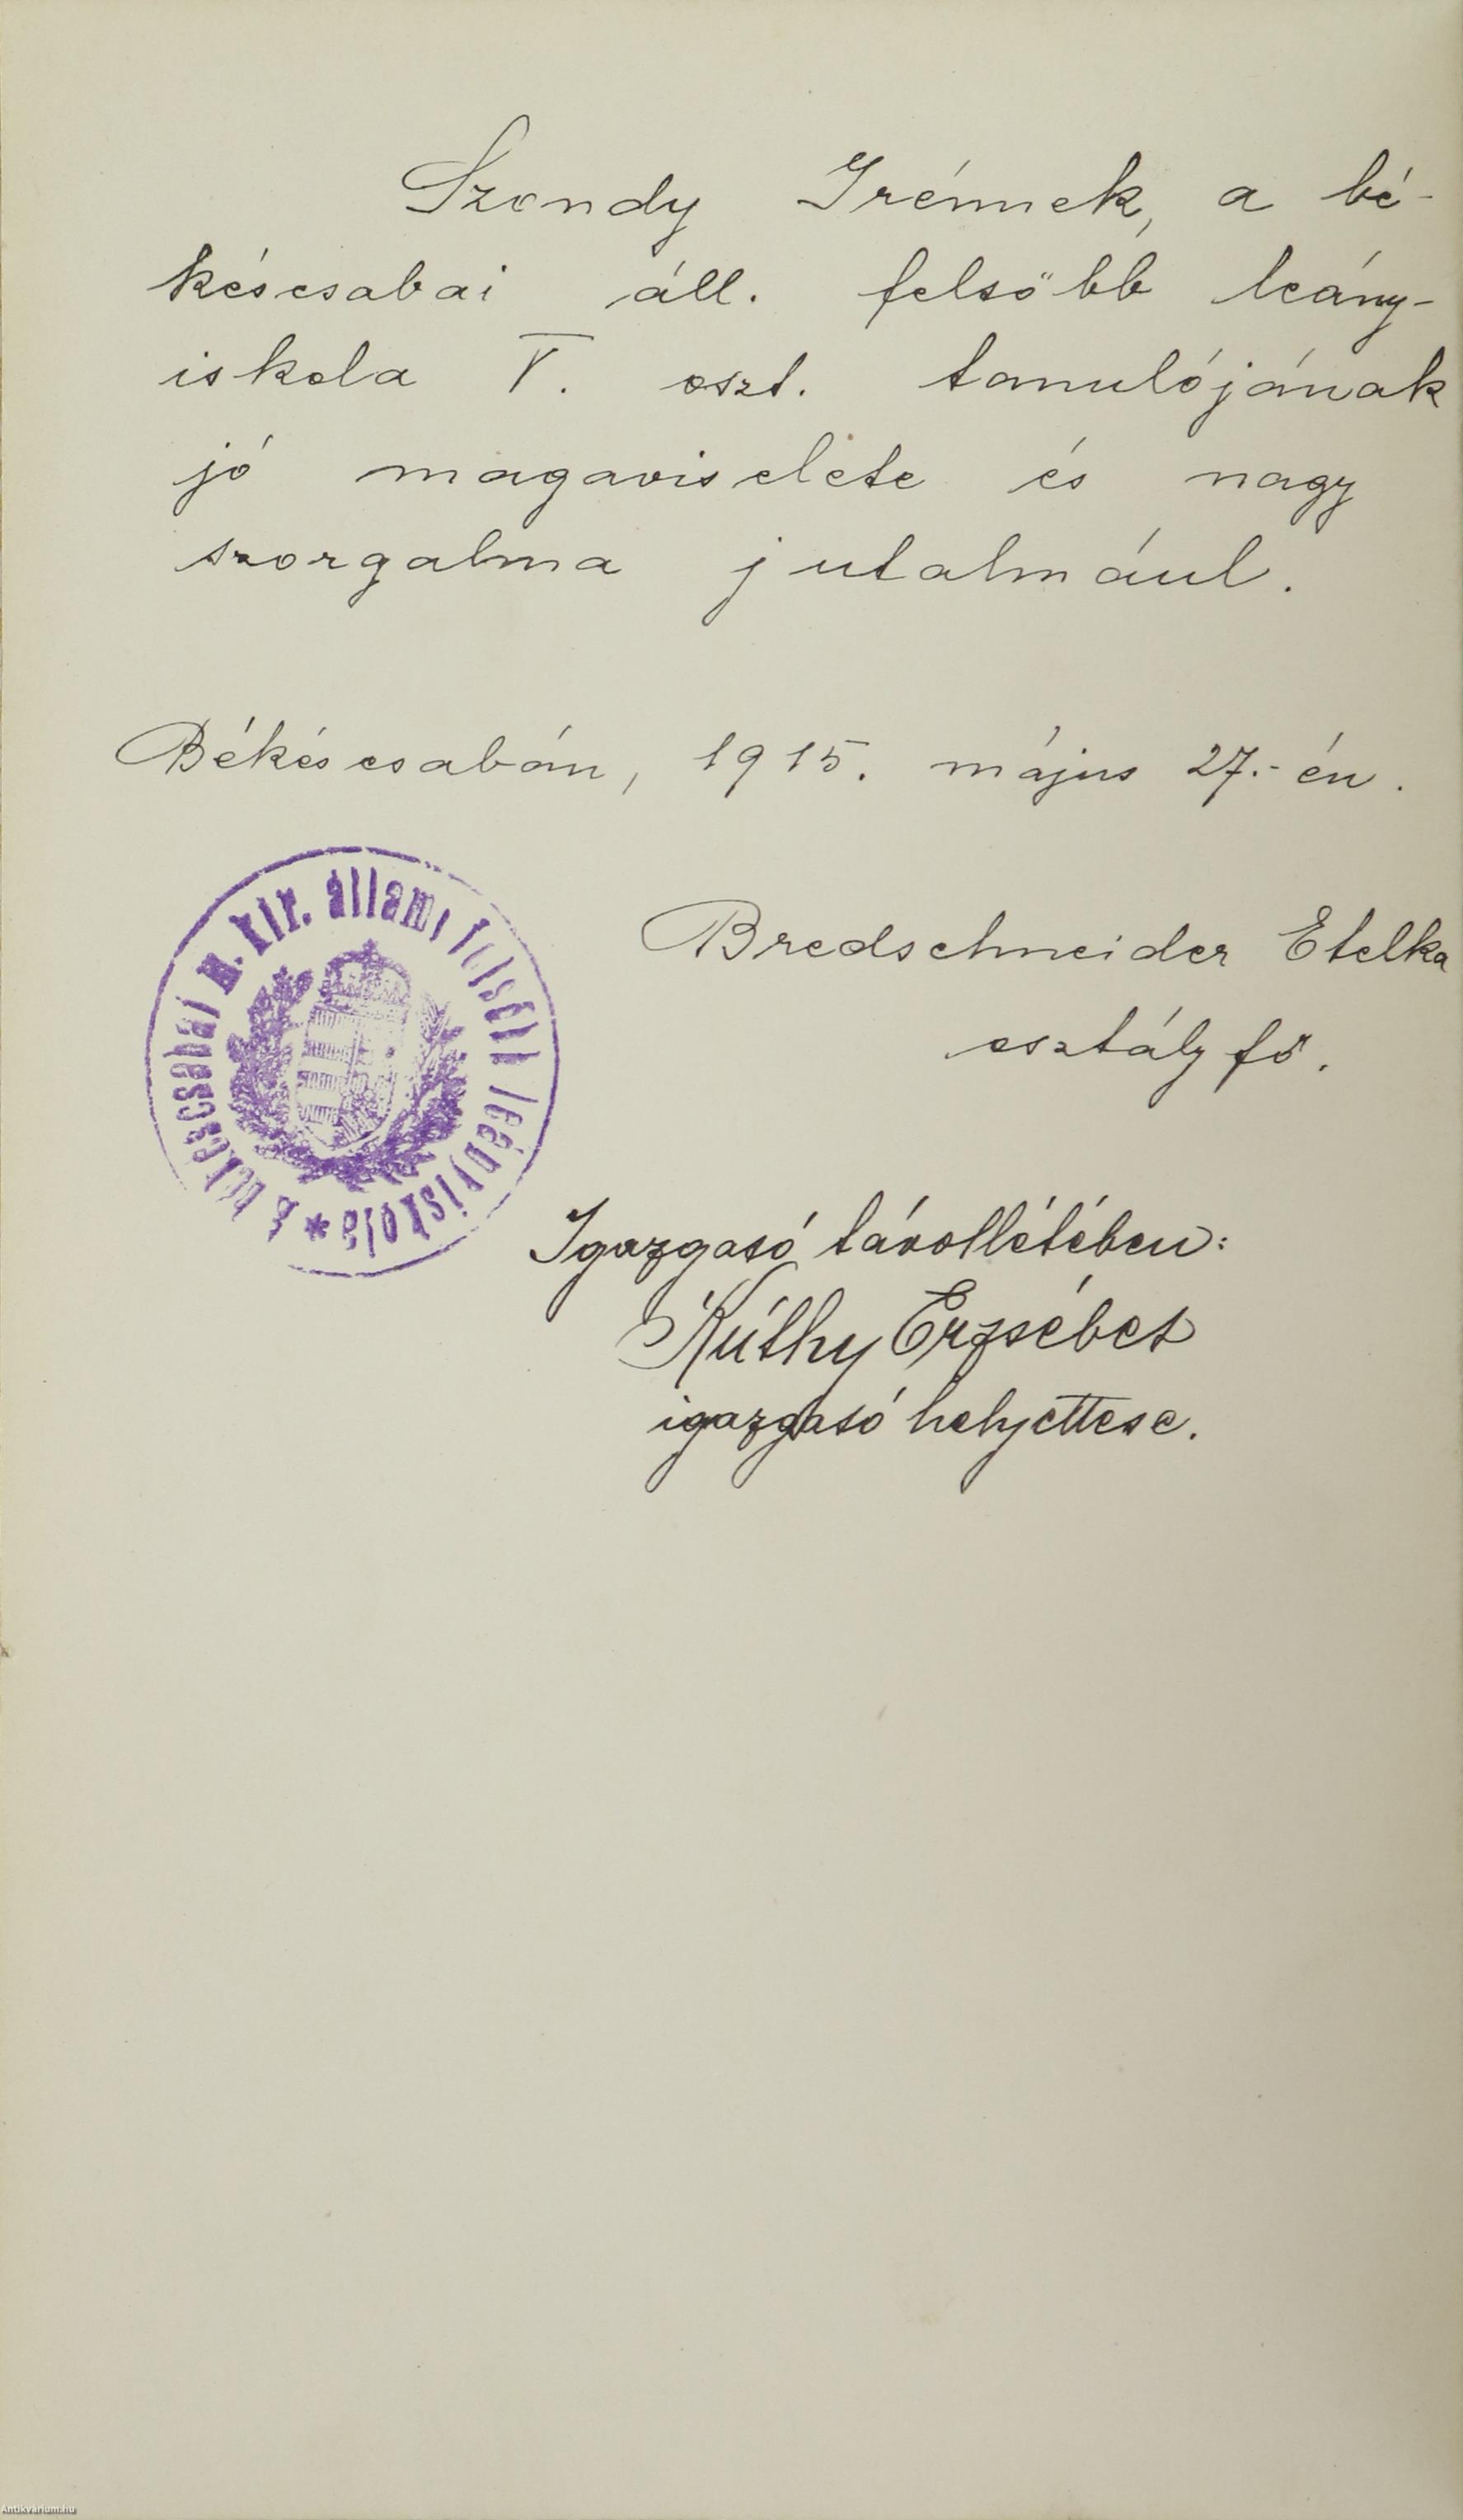 Szondy Irénnek, a bé-
késcsabai áll. felsőbb leány-
iskola V. oszt. tanulójának
jó magaviselete és nagy
szorgalma jutalmául.
Békéscsabán, 1915. május 27.-én.
A békéscsabai m. kir. állami felsőbb leányiskola *
Bredschneider Etelka
osztályfő.
Igazgató távollétében:
Kúthy Erzsébet
igazgató helyettese.
Antikvarium.hu